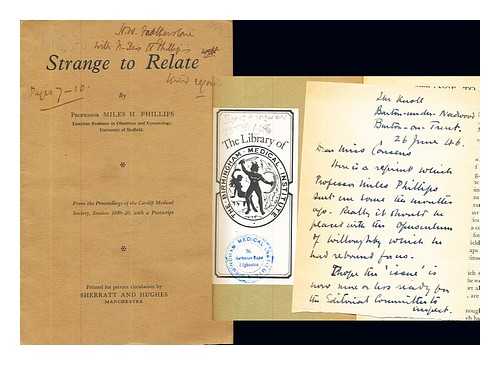 N.W. Featherstone
with Phillips
Strange to Relate
Pages 7-10.
By
PROFESSOR MILES H. PHILLIPS
Emeritus Professor in Obstetrics and Gynæcology,
University of Sheffield.
*
From the Proceedings of the Cardiff Medical
Society, Session 1949-50, with a Postscript
*
Printed for private circulation by
SHERRATT AND HUGHES
MANCHESTER
The Library of
THE BIRMINGHAM MEDICAL INSTITUTE
BIRMINGHAM MEDICAL
The Knoll
Barton-under-Needwood
Burton-on-Trent.
26 June 46.
Dear Miss Cousens
Here is a reprint which
Professor Miles Phillips
sent me some months
ago. Really it should be
placed with the Opusculum
of Willoughby which he
had rebound for us.
I hope the 'issue' is
now more or less ready for
the Editorial Committee to
inspect.